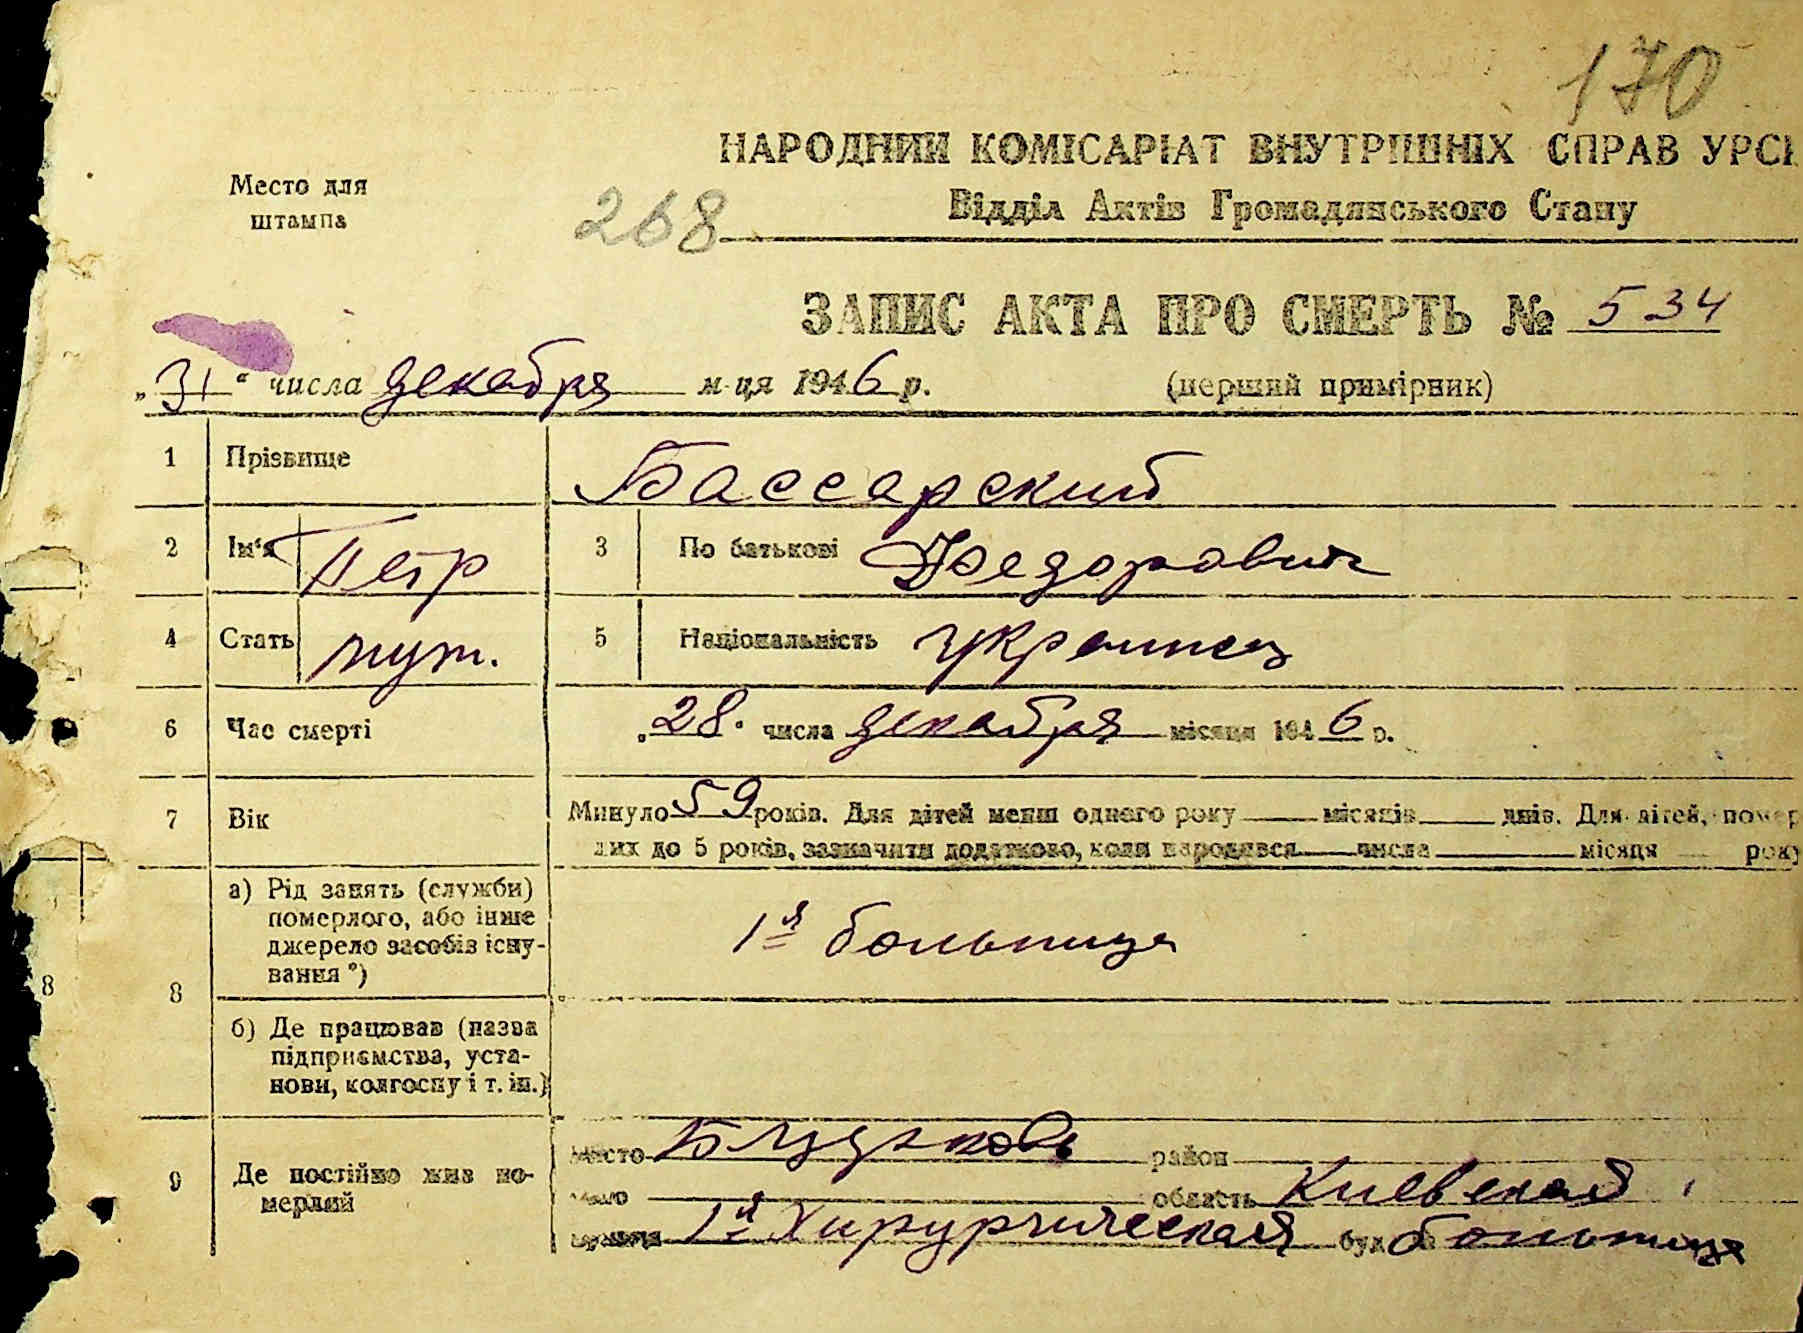 170
НАРОДНИЙ КОМІСАРІАТ ВНУТРІШНІХ СПРАВ УРСР
Место для
штампа
268
Відділ Актів Громадянського Стану
ЗАПИС АКТА ПРО СМЕРТЬ № 534
„31" числа декабря м-ця 1946 р. (перший примірник)
1 Прізвище Бассарский
2 Ім'я Петр 3 По батькові Федорович
4 Стать муж. 5 Національність украинец
6 Час смерті „28" числа декабря місяця 1946 р.
7 Вік Минуло 59 років. Для дітей менш одного року місяців днів. Для дітей, помер
лих до 5 років, зазначити додатково, коли народився числа місяця року
8 а) Рід занять (служби)
померлого, або інше
джерело засобів існу-
вання*)
1я больница
8
б) Де працював (назва
підприємства, уста-
нови, колгоспу і т. ін.)
9 Де постійно жив по-
мерлий
Місто район
область Киевская
1я Хирургическая буд больница